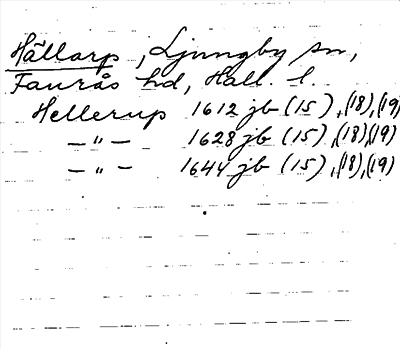 Hällarp, Ljungby sn,
Faurås hd, Hall. l.
Hellerup 1612 jb (15), (18), (19)
— " — 1628 jb (15), (18), (19)
— " — 1644 jb (15), (18), (19)